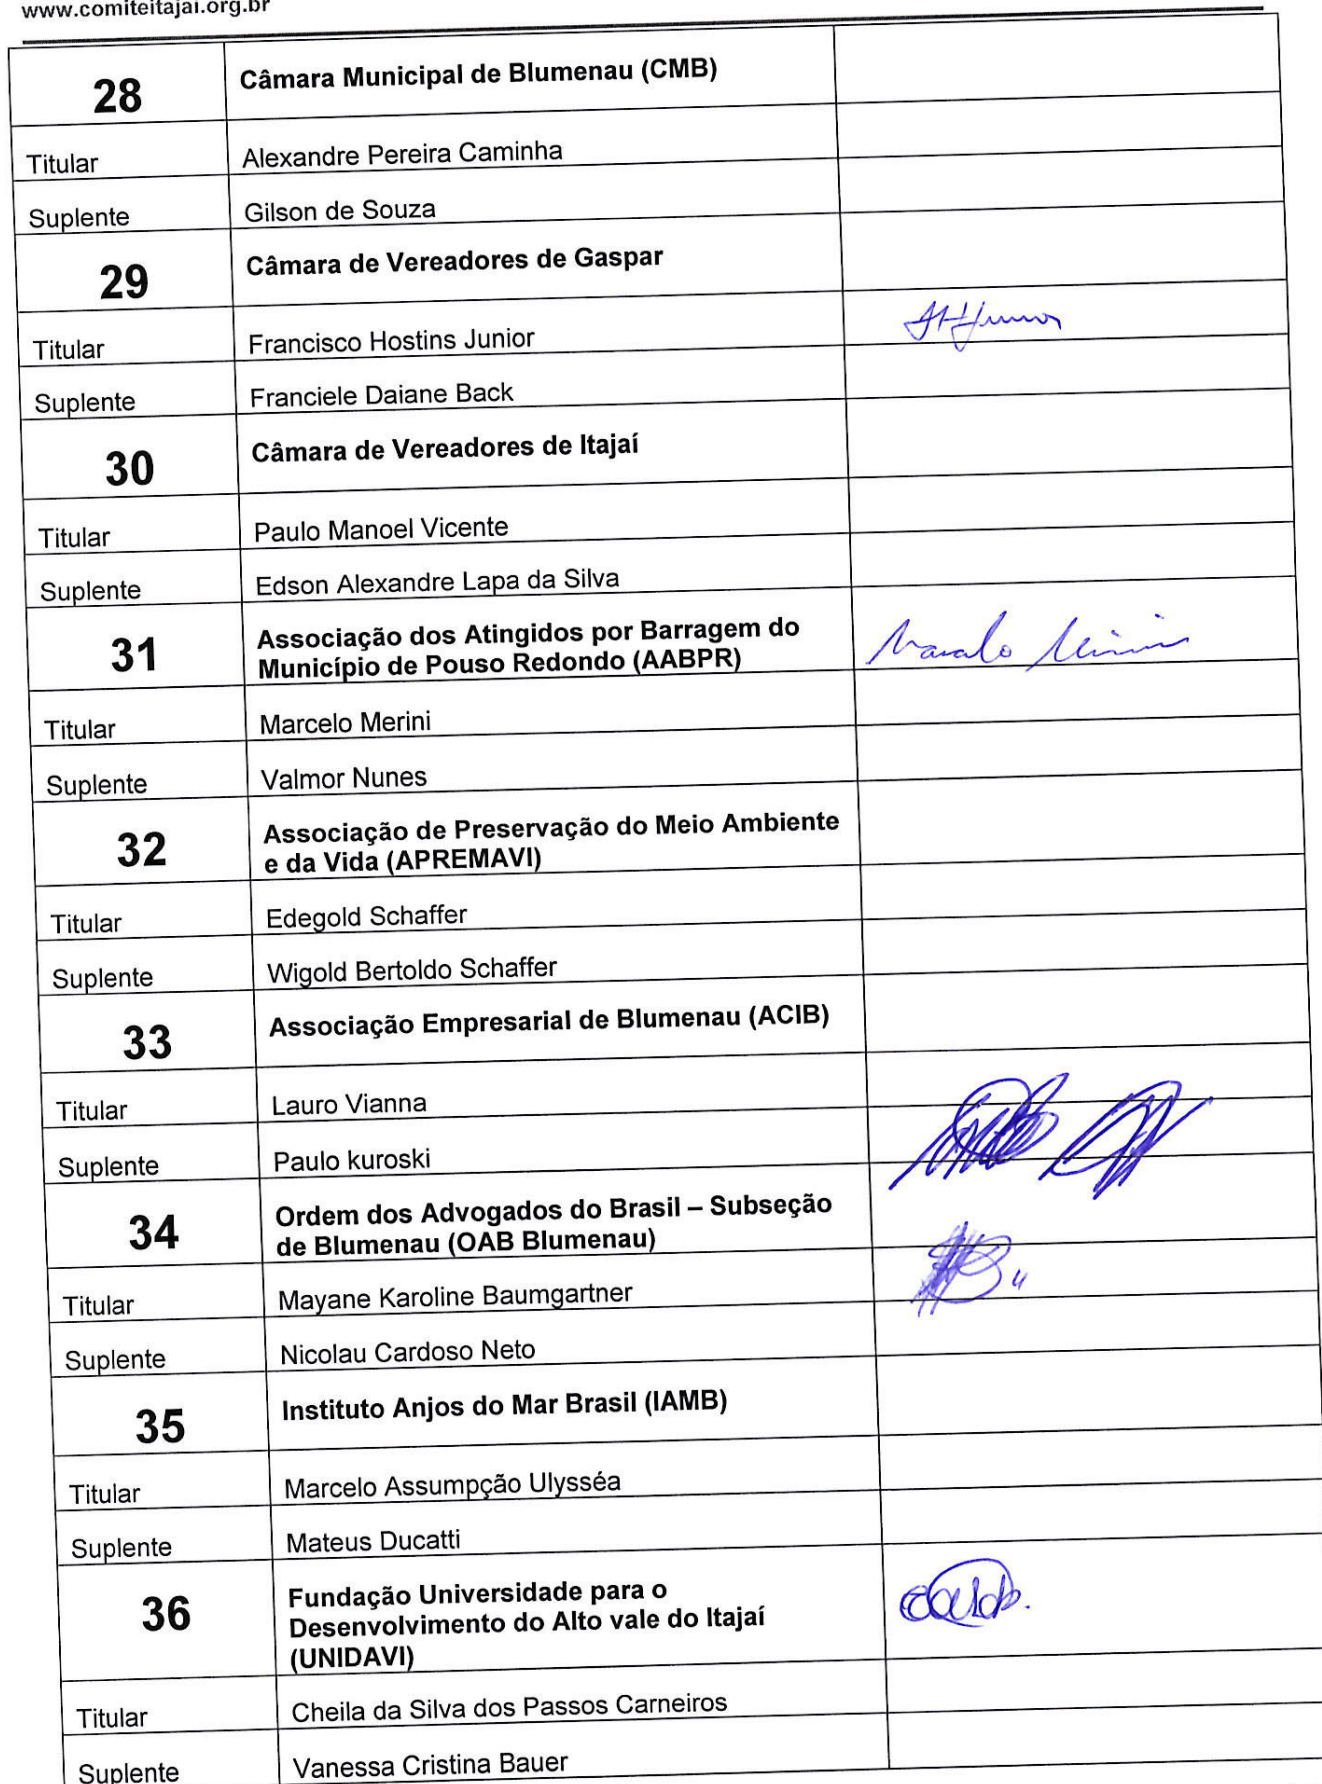 www.comiteitajai.org.br
28 Câmara Municipal de Blumenau (CMB)
Titular Alexandre Pereira Caminha
Suplente Gilson de Souza
29 Câmara de Vereadores de Gaspar
Titular Francisco Hostins Junior
Suplente Franciele Daiane Back
30 Câmara de Vereadores de Itajaí
Titular Paulo Manoel Vicente
Suplente Edson Alexandre Lapa da Silva
31 Associação dos Atingidos por Barragem do
Município de Pouso Redondo (AABPR)
Titular Marcelo Merini
Suplente Valmor Nunes
32 Associação de Preservação do Meio Ambiente
e da Vida (APREMAVI)
Titular Edegold Schaffer
Suplente Wigold Bertoldo Schaffer
33 Associação Empresarial de Blumenau (ACIB)
Titular Lauro Vianna
Suplente Paulo kuroski
34 Ordem dos Advogados do Brasil – Subseção
de Blumenau (OAB Blumenau)
Titular Mayane Karoline Baumgartner
Suplente Nicolau Cardoso Neto
35 Instituto Anjos do Mar Brasil (IAMB)
Titular Marcelo Assumpção Ulysséa
Suplente Mateus Ducatti
36 Fundação Universidade para o
Desenvolvimento do Alto vale do Itajaí
(UNIDAVI)
Titular Cheila da Silva dos Passos Carneiros
Suplente Vanessa Cristina Bauer